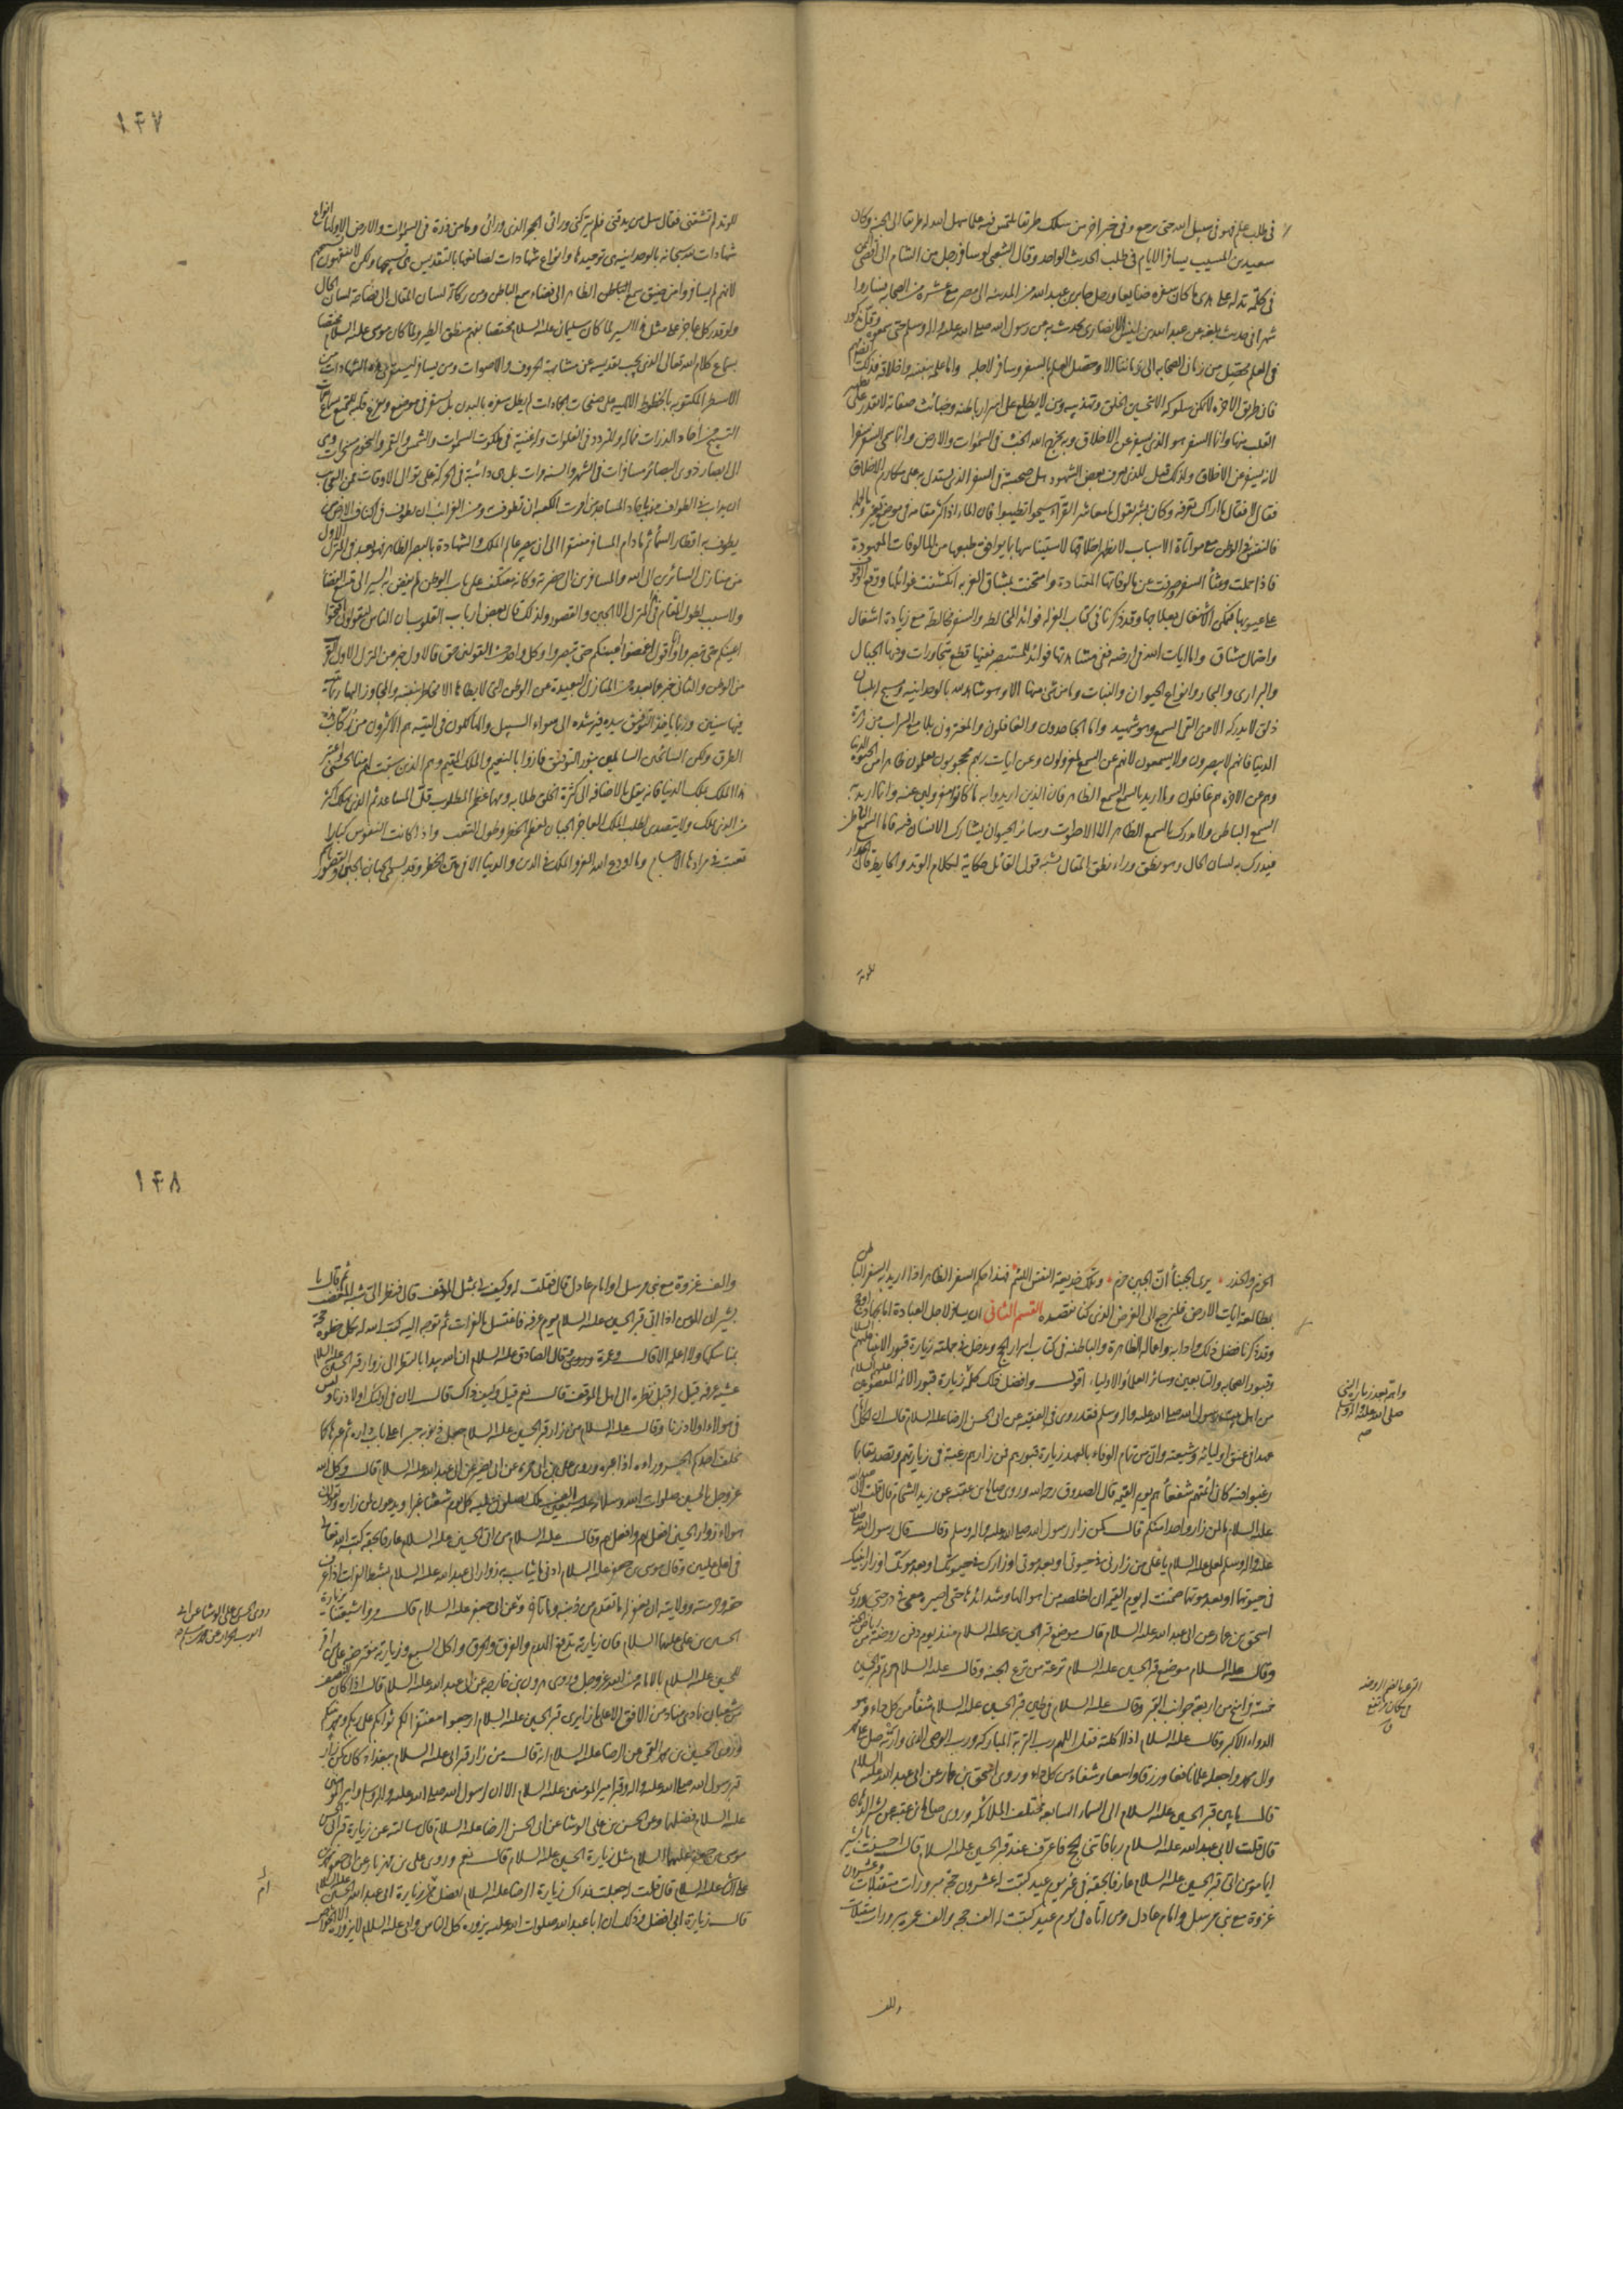 في طلب علم فهو في سبيل الله حتى يرجع وفي خبر اخر من سلك طريقا يلتمس فيه علما سهل الله له طريقا الى الجنة وكان
سعيد بن المسيب يسافر الايام في طلب الحديث الواحد وقال الشعبي لو سافر رجل من الشام الى اقصى اليمن
في كلمة تدله على هدى ما كان سفره ضايعا ورحل جابر بن عبد الله من المدينة الى مصر مع عشرة من الصحابة فساروا
شهرا في حديث بلغه عن عبد الله بن انيس الانصاري يحدث به عن رسول الله صلى الله عليه واله وسلم حتى سمعوه وكل مذكور
في العلم محصل من زمان الصحابة الى زماننا الا وحصل العلم بالسفر وسافر لاجله واما علمه بنفسه واخلاقه فذلك ايضا مهم
فان طريق الاخرة لا يمكن سلوكه الا بتحسين الخلق وتهذيبه ومن لا يطلع على اسرار باطنه وخبائث صفاته لا يقدر على تطهير
القلب منها وانما السفر هو الذي يسفر عن الاخلاق وبه يخرج الله الخبث في السموات والارض وانما سمي السفر سفرا
لانه يسفر عن الاخلاق ولذلك قيل للذي يعرف بعض الشهود هل صحبته في السفر الذي يستدل به على مكارم الاخلاق
فقال لا فقال ما اراك تعرفه وكان بشر يقول يا معاشر القراء سيحوا تطيبوا فان الماء اذا كثر مقامه في موضع تغير وبالجملة
فالنفس في الوطن مع مواتاة الاسباب لا يظهر اخلاقها لاستيناسها بما يوافق طبعها من المالوفات المعهودة
فاذا حملت وعثاء السفر وصرفت عن مالوفاتها المعتادة وامتحنت بمشاق الغربة انكشفت غوائلها ووقع الوقوف
على عيوبها فيمكن الاشتغال بعلاجها وقد ذكرنا في كتاب العزلة فوائد المخالطة والسفر مخالطة مع زيادة اشتغال
واحتمال مشاق واما ايات الله في ارضه ففي مشاهدتها فوائد للمستبصر ففيها قطع متجاورات وفيها الجبال
والبراري والبحار وانواع الحيوان والنبات وما من شيء منها الا وهو شاهد لله بالوحدانية ومسبح له بلسان
ذلق لا يدركه الا من القى السمع وهو شهيد واما الجاحدون والغافلون والمغترون بلامع السراب من زهرة
الدنيا فانهم لا يبصرون ولا يسمعون لانهم عن السمع لمعزولون وعن ايات ربهم محجوبون يعلمون ظاهرا من الحيوة الدنيا
وهم عن الاخرة هم غافلون وما اريد بالسمع السمع الظاهر فان الذين اريدوا به ما كانوا معزولين عنه وانما اريد به
السمع الباطن ولا يدرك بالسمع الظاهر الا الاصوات وسائر الحيوان يشارك الانسان فيه فاما السمع الباطن
فيدرك به لسان الحال وهو نطق وراء نطق المقال يشبه قول القائل حكاية لكلام الوتد والحايط قال الجدار
للوتد
١٤٧
للوتد لم تشقني فقال سل من يدقني فلم يتركني ورائي الحجر الذي ورائي وما من ذرة في السموات والارض الا ولها انواع
شهادات لله سبحانه بالوحدانية هي توحيدها وانواع شهادات لصانعها بالتقديس هي تسبيحها ولكن لا تفقهون تسبيحهم
لانهم لم يسافروا من ضيق سمع الظاهر الى فضاء سمع الباطن ومن ركاكة لسان المقال الى فصاحة لسان الحال
ولو قدر كل عاجز على مثل هذا السير لما كان سليمان عليه السلام مختصا بفهم منطق الطير ولما كان موسى عليه السلام مختصا
بسماع كلام الله تعالى الذي يجب تقديسه عن مشابهة الحروف والاصوات ومن يسافر ليستقرئ هذه الشهادات من
الاسطر المكتوبة بالخطوط الالهية على صفحات الجمادات لم يطل سفره بالبدن بل يستقر في موضع ويفرغ قلبه للتمتع بسماع نغمات
التسبيح من احاد الذرات فما له وللتردد في الفلوات وله غنية في ملكوت السموات والشمس والقمر والنجوم مسخرات وهي
الى ابصار ذوي البصائر مسافرات في الشهر والسنة مرات بل هي دائبة في الحركة على توالي الاوقات فمن الغرائب
ان يداب في الطواف باحاد المساجد من امرت الكعبة ان تطوف به ومن الغرائب ان يطوف في اكناف الارض من
يطوف به اقطار السماء ثم ما دام المسافر مفتقرا الى ان يبصر عالم الملك والشهادة بالبصر الظاهر فهو بعد في المنزل الاول
من منازل السائرين الى الله والمسافرين الى حضرته وكانه معتكف على باب الوطن لم يفض به السير الى متسع الفضا
ولا سبب لطول المقام في هذا المنزل الا الجبن والقصور ولذلك قال بعض ارباب القلوب ان الناس يقولون افتحوا
اعينكم حتى تبصروا وانا اقول اغمضوا اعينكم حتى تبصروا وكل واحد من القولين حق فالاول خبر عن المنزل الاول القريب
من الوطن والثاني خبر عما بعده من المنازل البعيدة عن الوطن التي لا يطاها الا مخاطر بنفسه والمجاوز اليها ربما يتيه
فيها سنين وربما ياخذ التوفيق بيده فيرشده الى سواء السبيل والهالكون في التيه هم الاكثرون من ركاب هذه
الطرق ولكن السائحين السابلين بنور التوفيق فازوا بالنعيم والملك المقيم وهم الذين سبقت لهم منا الحسنى واعتبر
هذا الملك بملك الدنيا فانه يقل بالاضافة الى كثرة الخلق طلابه ومهما عظم المطلوب قل المساعد ثم الذي يهلك اكثر
من الذي يملك ولا يتصدى لطلب الملك العاجز الجبان لعظم الخطر وطول التعب واذا كانت النفوس كبارا
تعبت في مرادها الاجسام وما اودع الله العز والملك في الدين والدنيا الا في حيز الخطر وقد يسمي الجبان الجبن والقصور باسم
الحزم والحذر يرى الجبناء ان الجبن حزم وتلك خديعة النفس اللئيم فهذا حكم السفر الظاهر اذا اريد به السفر الباطن
بمطالعة ايات الارض فلنرجع الى الغرض الذي كنا نقصده القسم الثاني ان يسافر لاجل العبادة اما لجهاد او حج
وقد ذكرنا فضل ذلك وادابه واعماله الظاهرة والباطنة في كتاب اسرار الحج ويدخل في جملته زيارة قبور الانبياء عليهم السلام
وقبور الصحابة والتابعين وسائر العلماء والاولياء اقول وافضل ذلك كله زيارة قبور الائمة المعصومين عليهم السلام
من اهل بيت رسول الله صلى الله عليه واله وسلم فقد روى في الفقيه عن ابي الحسن الرضا عليه السلام قال ان لكل امام
عهدا في عنق اوليائه وشيعته وان من تمام الوفاء بالعهد زيارة قبورهم فمن زارهم رغبة في زيارتهم وتصديقا بما
رغبوا فيه كان ائمتهم شفعاءهم يوم القيمة قال الصدوق رحمه الله وروى صالح بن عقبة عن زيد الشحام قال قلت لابي عبد الله
عليه السلام ما لمن زار واحدا منكم قال كمن زار رسول الله صلى الله عليه واله وسلم وقال قال رسول الله صلى الله
عليه واله وسلم لعلي عليه السلام يا علي من زارني في حيوتي او بعد موتي او زارك في حيوتك او بعد موتك او زار ابنيك
في حيوتهما او بعد موتهما ضمنت له يوم القيمة ان اخلصه من اهوالها وشدائدها حتى اصيره معي في درجتي وروى
اسحق بن عمار عن ابي عبد الله عليه السلام قال موضع قبر الحسين عليه السلام منذ يوم دفن روضة من رياض الجنة
وقال عليه السلام موضع قبر الحسين عليه السلام ترعة من ترع الجنة وقال عليه السلام حريم قبر الحسين
خمسة فراسخ من اربعة جوانب القبر وقال عليه السلام في طين قبر الحسين عليه السلام شفاء من كل داء وهو
الدواء الاكبر وقال عليه السلام اذا اكلته فقل اللهم رب التربة المباركة ورب الوصي الذي وارته صل على محمد
وال محمد واجعله علما نافعا ورزقا واسعا وشفاء من كل داء وروى اسحق بن عمار عن ابي عبد الله عليه السلام
قال ما بين قبر الحسين عليه السلام الى السماء السابعة مختلف الملائكة وروى صالح بن عقبة عن بشير الدهان
قال قلت لابي عبد الله عليه السلام ربما فاتني الحج فاعرف عند قبر الحسين عليه السلام قال احسنت يا بشير
ايما مؤمن اتى قبر الحسين عليه السلام عارفا بحقه في غير يوم عيد كتبت له عشرون حجة مبرورات متقبلات وعشرون
غزوة مع نبي مرسل وامام عادل ومن اتاه في يوم عيد كتبت له الف حجة والف عمرة مبرورات متقبلات
والف
صلى الله عليه واله وسلم
١٤٨
والف غزوة مع نبي مرسل او امام عادل قال فقلت له وكيف لي بمثل الموقف قال فنظر الي شبه المغضب ثم قال يا
بشير ان المؤمن اذا اتى قبر الحسين عليه السلام يوم عرفة فاغتسل بالفرات ثم توجه اليه كتب الله له بكل خطوة حجة
بمناسكها ولا اعلمه الا قال وعمرة وقال الصادق عليه السلام ان الله يبدا بالنظر الى زوار قبر الحسين عليه السلام
عشية عرفة قيل له قبل نظره الى اهل الموقف قال نعم قيل وكيف ذاك قال لان في اولئك اولاد زنا وليس
في هؤلاء اولاد زنا وقال عليه السلام من زار قبر الحسين عليه السلام جعل ذنوبه جسرا على باب داره ثم عبرها كما
يخلف احدكم الجسر وراءه اذا عبره وروى علي بن ابي حمزة عن ابي بصير عن ابي عبد الله عليه السلام قال وكل الله
عز وجل بالحسين صلوات الله وسلامه عليه سبعين الف ملك يصلون عليه كل يوم شعثا غبرا ويدعون لمن زاره ويقولون
هؤلاء زوار الحسين افعل بهم وافعل بهم وقال عليه السلام من اتى الحسين عليه السلام عارفا بحقه كتبه الله تعالى
في اعلى عليين وقال موسى بن جعفر عليه السلام ادنى ما يثاب به زوار ابي عبد الله عليه السلام بشط الفرات اذا عرف
حقه وحرمته وولايته ان يغفر له ما تقدم من ذنبه وما تاخر وعن ابي جعفر عليه السلام قال مروا شيعتنا بزيارة
الحسين بن علي عليهما السلام فان زيارته تدفع الهدم والغرق والحرق واكل السبع وزيارته مفترضة على من اقر
للحسين عليه السلام بالامامة من الله عز وجل وروى هرون بن خارجة عن ابي عبد الله عليه السلام قال اذا كان النصف
من شعبان نادى مناد من الافق الاعلى زائري قبر الحسين عليه السلام ارجعوا مغفورا لكم ثوابكم على ربكم ومحمد نبيكم
وروى الحسين بن محمد القمي عن الرضا عليه السلام انه قال من زار قبر ابي عليه السلام ببغداد كان كمن زار
قبر رسول الله صلى الله عليه واله وقبر امير المؤمنين عليه السلام الا ان لرسول الله صلى الله عليه واله وسلم وامير المؤمنين
عليه السلام فضلهما وعن الحسن بن علي الوشا عن ابي الحسن الرضا عليه السلام قال سالته عن زيارة قبر ابي الحسن
موسى بن جعفر عليهما السلام مثل زيارة الحسين عليه السلام قال نعم وروى علي بن مهزيار عن ابي جعفر محمد بن
علي الثاني عليه السلام قال قلت له جعلت فداك زيارة الرضا عليه السلام افضل ام زيارة ابي عبد الله الحسين عليه السلام
قال زيارة ابي افضل وذلك ان ابا عبد الله صلوات الله عليه يزوره كل الناس وابي عليه السلام لا يزوره الا الخواص